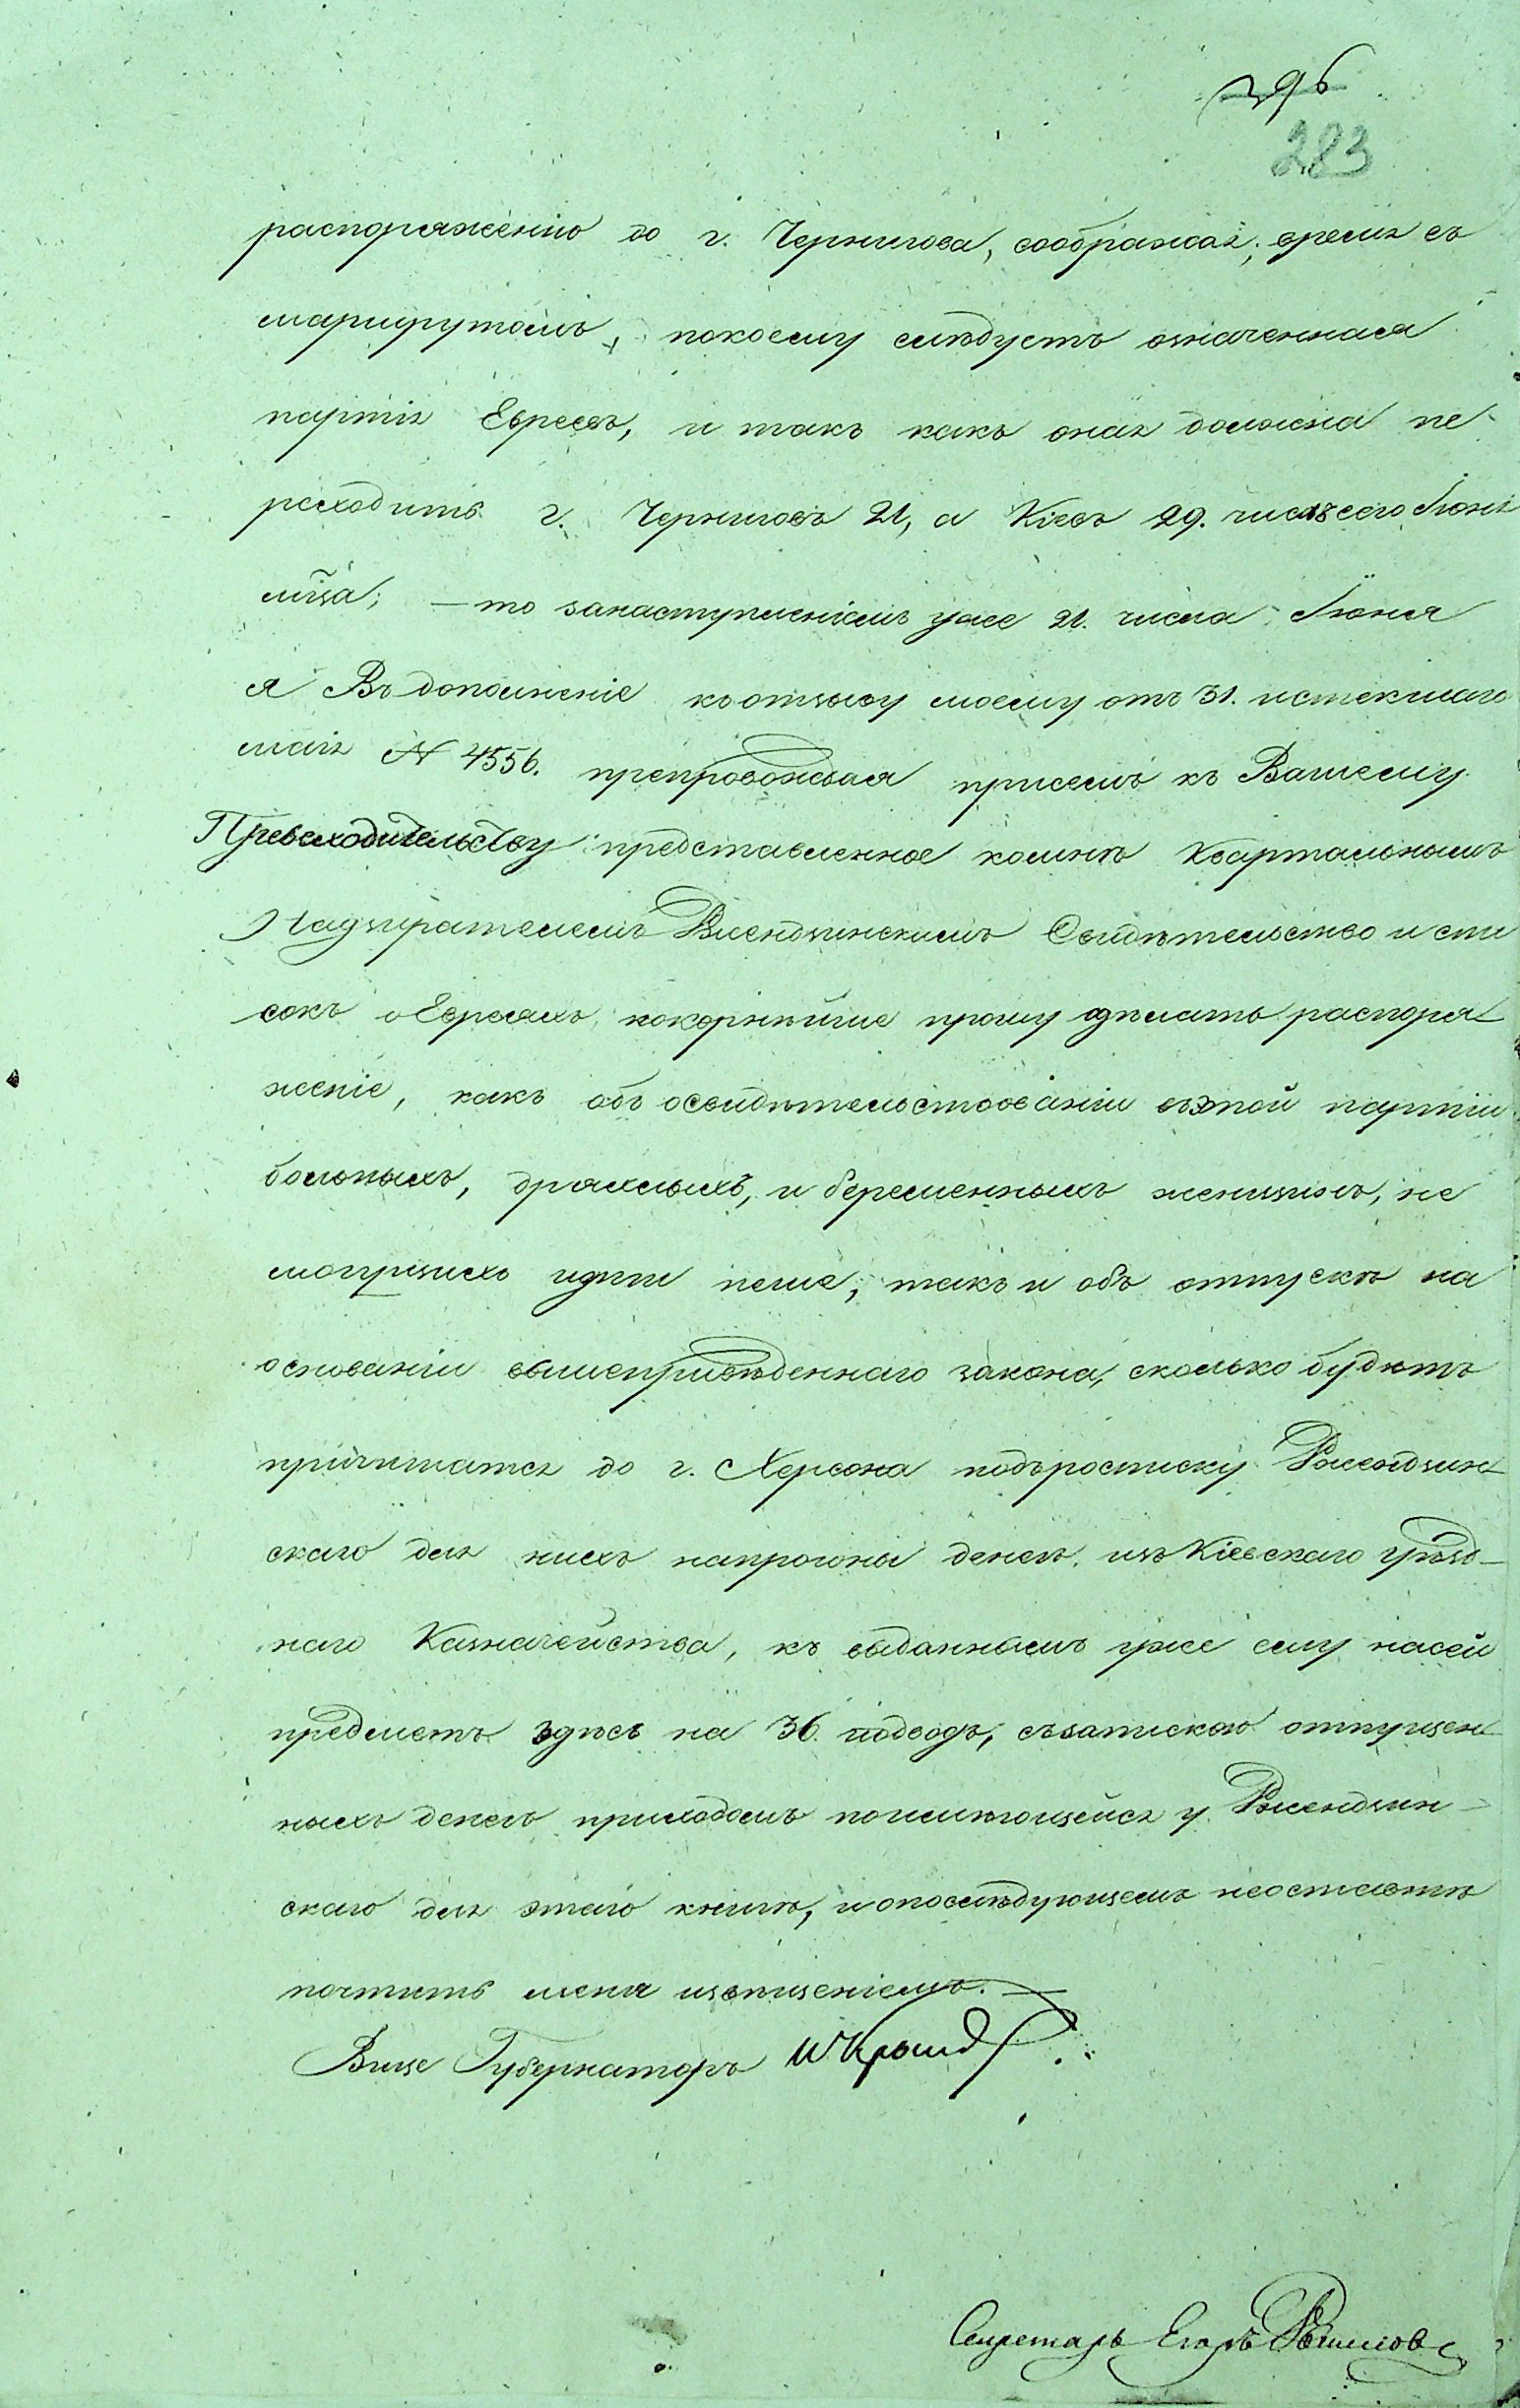 396
283
распоряженію до г. Чернигова, соображая; время съ
маршрутомъ, покоему слѣдуетъ означенная
партія Евреевъ, и такъ какъ оная должна пе-
реходить г. Черниговъ 21, а Кіевъ 29. числъ сего Іюня
мѣца; — то занаступленіемъ уже 21. числа Іюня
я Въ дополненіе къ отзыву моему отъ 31. истекшаго
маія № 4556. препровождая присемъ къ Вашему
Превосходительству представленное комнѣ Квартальнымъ
Надзирателемъ Свидѣтельство и спи
сокъ о Евреяхъ, покорнѣйше прошу сдѣлать распоря-
женіе, какъ объ освидѣтельствованіи въ этой партіи
больныхъ, дряхлыхъ, и беременныхъ женщинъ, не
могущихъ идти пеше, такъ и объ отпускѣ на
основаніи вышеприведеннаго закона, сколько будетъ
причитатся до г. Херсона подъ росписку
скаго для нихъ напрогоны денегъ изъ Кіевскаго уѣзд-
наго Казначейства, къ выданнымъ уже ему насей
предметъ здѣсь на 36. подводъ, съ запискою отпущен
ныхъ денегъ приходомъ поимѣющейся у
скаго для этаго книгѣ, и опослѣдующемъ неоставте
почтить меня извѣщеніемъ. —
Вице Губернаторъ
Секретарь Егоръ